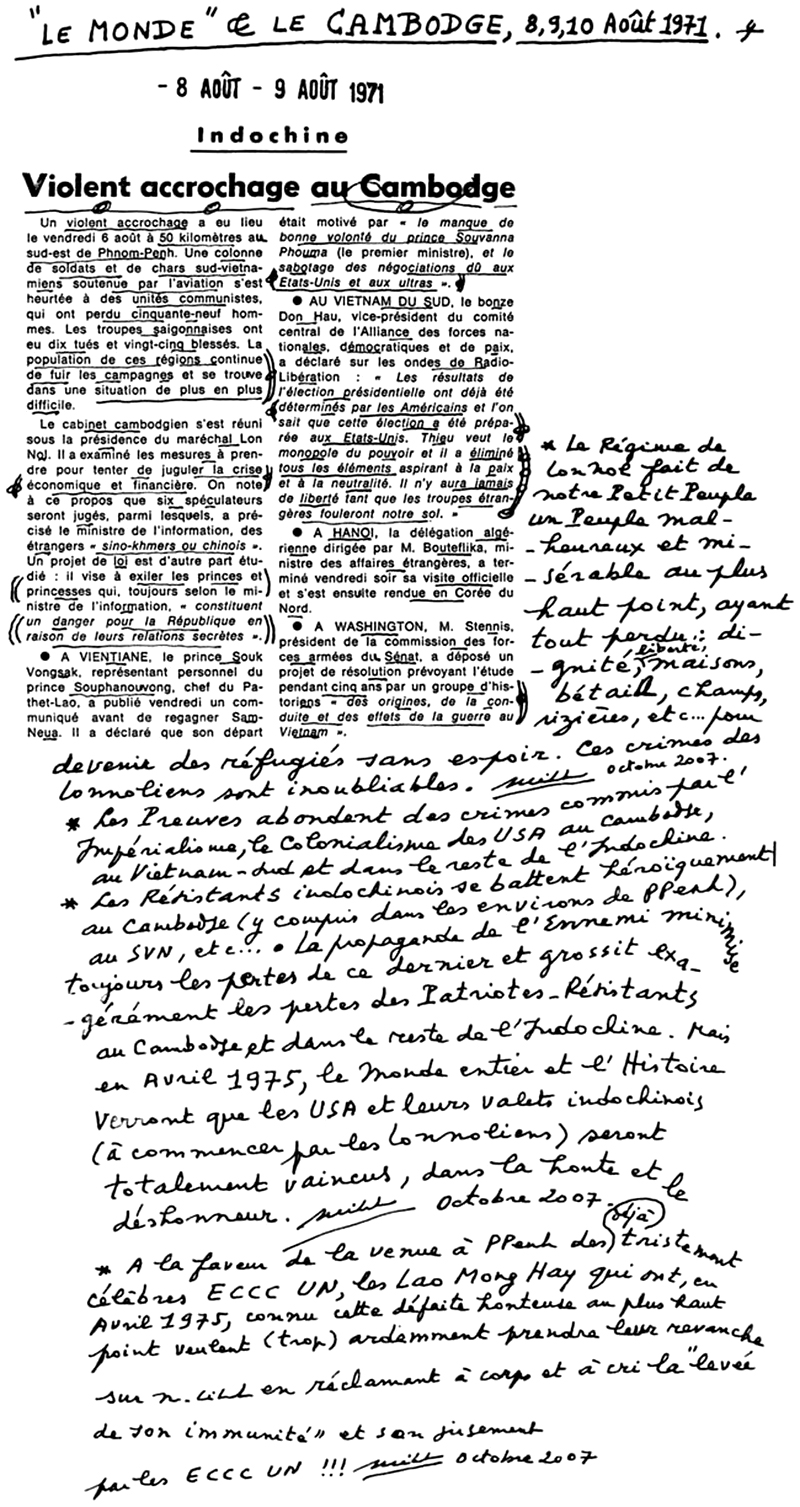 "LE MONDE" & LE CAMBODGE, 8,9,10 Août 1971.
- 8 AOÛT - 9 AOÛT 1971
Indochine
Violent accrochage au Cambodge
Un violent accrochage a eu lieu
le vendredi 6 août à 50 kilomètres au
sud-est de Phnom-Penh. Une colonne
de soldats et de chars sud-vietna-
miens soutenue par l'aviation s'est
heurtée à des unités communistes,
qui ont perdu cinquante-neuf hom-
mes. Les troupes saigonnaises ont
eu dix tués et vingt-cinq blessés. La
population de ces régions continue
de fuir les campagnes et se trouve
dans une situation de plus en plus
difficile.
Le cabinet cambodgien s'est réuni
sous la présidence du maréchal Lon
Nol. Il a examiné les mesures à pren-
dre pour tenter de juguler la crise
économique et financière. On note
à ce propos que six spéculateurs
seront jugés, parmi lesquels, a pré-
cisé le ministre de l'information, des
étrangers « sino-khmers ou chinois ».
Un projet de loi est d'autre part étu-
dié : il vise à exiler les princes et
princesses qui, toujours selon le mi-
nistre de l'information, « constituent
un danger pour la République en
raison de leurs relations secrètes ».
● A VIENTIANE, le prince Souk
Vongsak, représentant personnel du
prince Souphanouvong, chef du Pa-
thet-Lao, a publié vendredi un com-
muniqué avant de regagner Sam-
Neua. Il a déclaré que son départ
était motivé par « le manque de
bonne volonté du prince Souvanna
Phouma (le premier ministre), et le
sabotage des négociations dû aux
Etats-Unis et aux ultras ».
● AU VIETNAM DU SUD, le bonze
Don Hau, vice-président du comité
central de l'Alliance des forces na-
tionales, démocratiques et de paix,
a déclaré sur les ondes de Radio-
Libération : « Les résultats de
l'élection présidentielle ont déjà été
déterminés par les Américains et l'on
sait que cette élection a été prépa-
rée aux Etats-Unis. Thieu veut le
monopole du pouvoir et il a éliminé
tous les éléments aspirant à la paix
et à la neutralité. Il n'y aura jamais
de liberté tant que les troupes étran-
gères fouleront notre sol. »
● A HANOI, la délégation algé-
rienne dirigée par M. Bouteflika, mi-
nistre des affaires étrangères, a ter-
miné vendredi soir sa visite officielle
et s'est ensuite rendue en Corée du
Nord.
● A WASHINGTON, M. Stennis,
président de la commission des for-
ces armées du Sénat, a déposé un
projet de résolution prévoyant l'étude
pendant cinq ans par un groupe d'his-
toriens « des origines, de la con-
duite et des effets de la guerre au
Vietnam ».
* Le Régime de
Lonnol fait de
notre Petit Peuple
un Peuple mal-
-heureux et mi-
-sérable au plus
haut point, ayant
tout perdu : di-
-gnité, liberté, maisons,
bétail, champs,
rizières, etc... pour
devenir des réfugiés sans espoir. Ces crimes des
Lonnoliens sont inoubliables. octobre 2007.
* Les Preuves abondent des crimes commis par l'
Impérialisme, le Colonialisme des USA au Cambodge,
au Vietnam-Sud et dans le reste de l'Indochine.
* Les Résistants indochinois se battent héroïquement
au Cambodge (y compris dans les environs de PPenh),
au SVN, etc... • La propagande de l'Ennemi minimise
toujours les pertes de ce dernier et grossit exa-
-gérément les pertes des Patriotes-Résistants
au Cambodge et dans le reste de l'Indochine. Mais
en Avril 1975, le Monde entier et l'Histoire
verront que les USA et leurs valets indochinois
(à commencer par les Lonnoliens) seront
totalement vaincus, dans la honte et le
déshonneur. Octobre 2007.
* A la faveur de la venue à PPenh des (déjà) tristement
célèbres ECCC UN, les Lao Mong Hay qui ont, en
Avril 1975, connu cette défaite honteuse au plus haut
point veulent (trop) ardemment prendre leur revanche
sur n. en réclamant à corps et à cri la "levée
de son immunité" et son jugement
par les ECCC UN !!! Octobre 2007